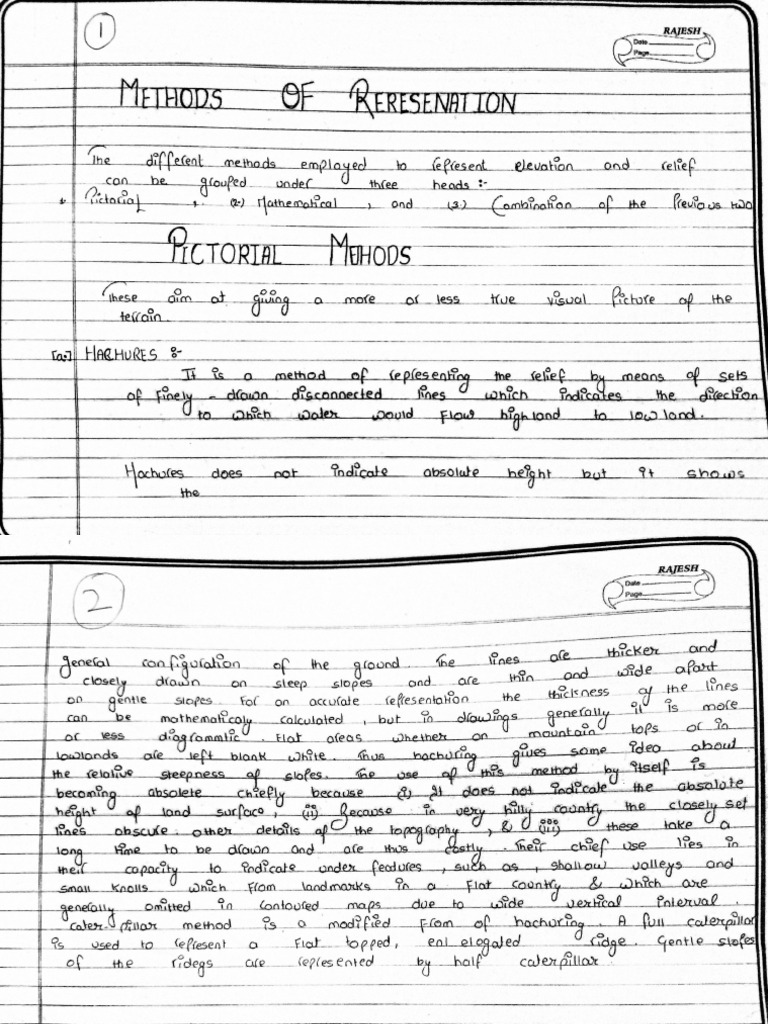 1
RAJESH
Date
Page
METHODS OF RERESENATION
The different methods employed to represent elevation and relief
can be grouped under three heads :-
Pictorial , (2.) Mathematical , and (3.) Combination of the Previous two
PICTORIAL MEHODS
These aim at giving a more or less true visual Picture of the
terrain.
[a.] HACHURES :-
It is a method of representing the relief by means of sets
of Finely - drawn disconnected lines which indicates the direction
to which water would Flow highland to lowland.
Hachures does not indicate absolute height but it shows
the
2
RAJESH
Date
Page
general configuration of the ground. The lines are thicker and
closely drawn on sleep slopes and are thin and wide apart
on gentle slopes. For an accurate representation the thickness of the lines
can be mathematicaly calculated , but in drawings generally it is more
or less diagrammtic. Flat areas whether on mountain tops or in
lowlands are left blank white. Thus hachuring gives some idea about
the relative steepness of slopes. The use of this method by itself is
becoming absolete chiefly because (i) It does not indicate the absolute
height of land surface, (ii) Because in very hilly country the closely set
lines obscure other details of the topography , & (iii) these take a
long time to be drawn and are thus costly. Their chief use lies in
their capacity to indicate under features , such as , shallow valleys and
small knolls which From landmarks in a Flat country & which are
generally omitted in contoured maps due to wide vertical interval.
cater-pillar method is a modified From of hachuring. A full caterpillar
is used to represent a Flat topped, enl elogated ridge. Gentle slopes
of the ridegs are represented by half caterpillar.